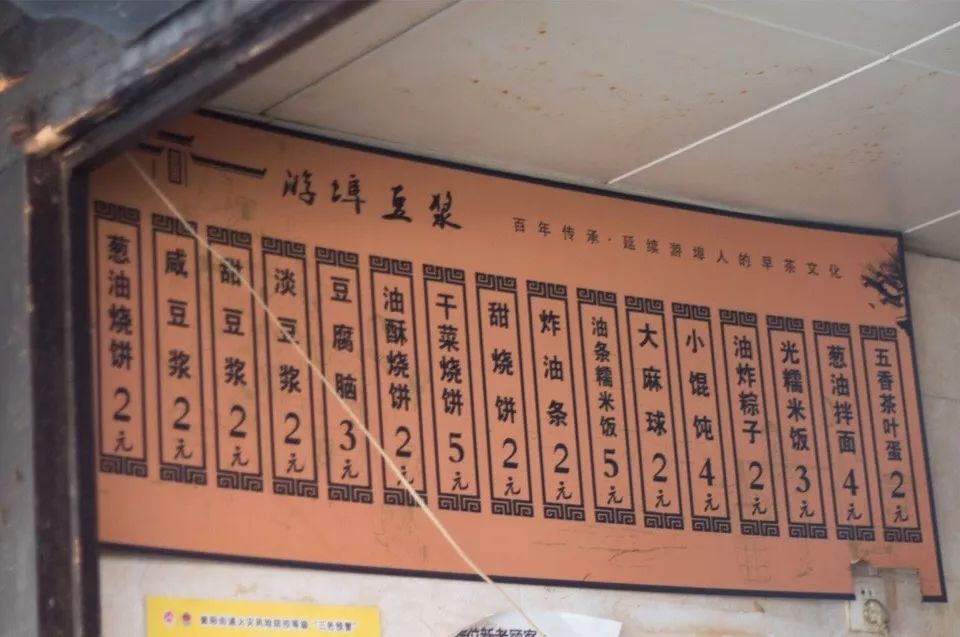 游埠豆浆
百年传承·延续游埠人的早茶文化
葱油烧饼2元
咸豆浆2元
甜豆浆2元
淡豆浆2元
豆腐脑3元
油酥烧饼2元
干菜烧饼5元
甜烧饼2元
炸油条2元
油条糯米饭5元
大麻球2元
小馄饨4元
油炸粽子2元
光糯米饭3元
葱油拌面4元
五香茶叶蛋2元
紫阳街道火灾风险防控等级"三色预警"
新老顾客